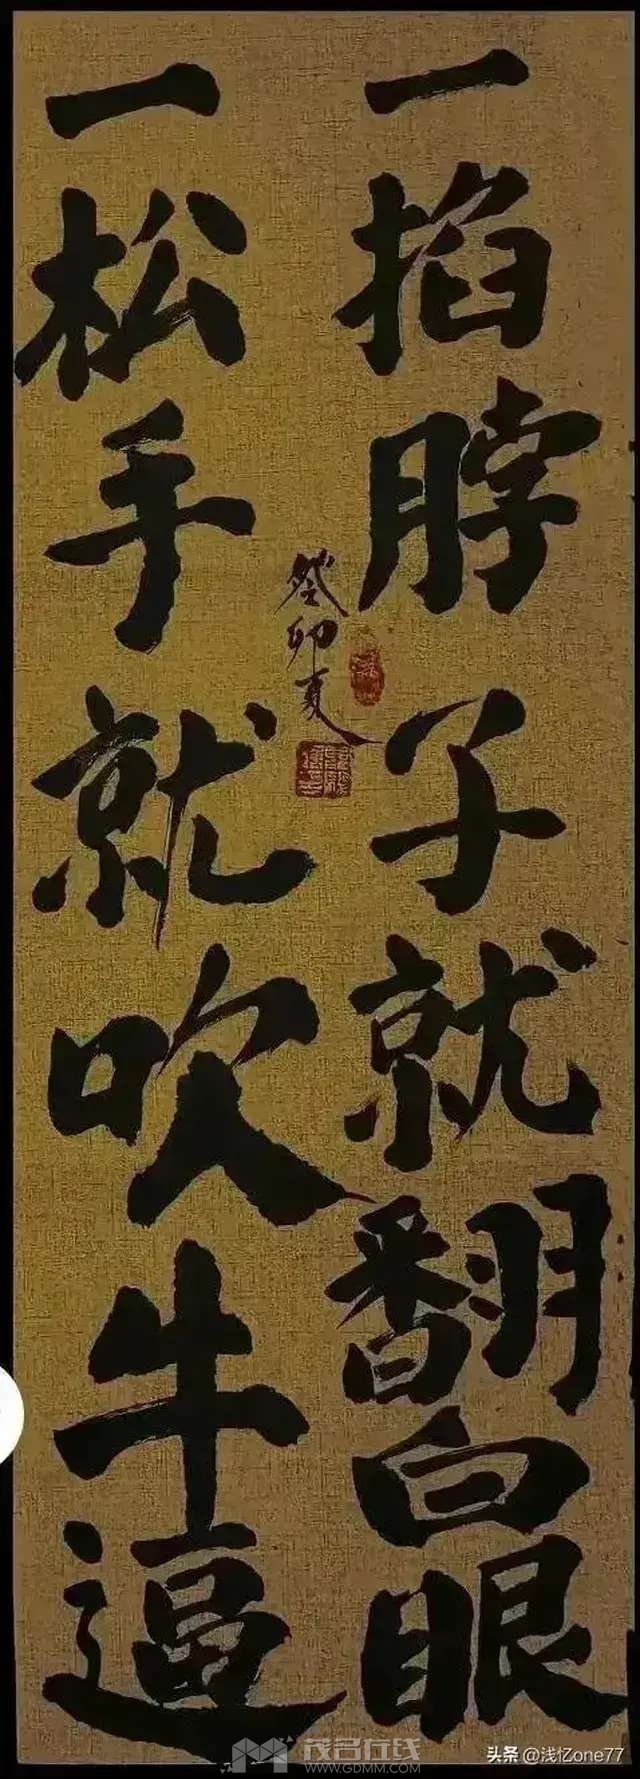 一掐脖子就翻白眼
一松手就吹牛逼
癸卯夏
茂名在线
WWW.GDMM.COM
头条 @浅忆one77